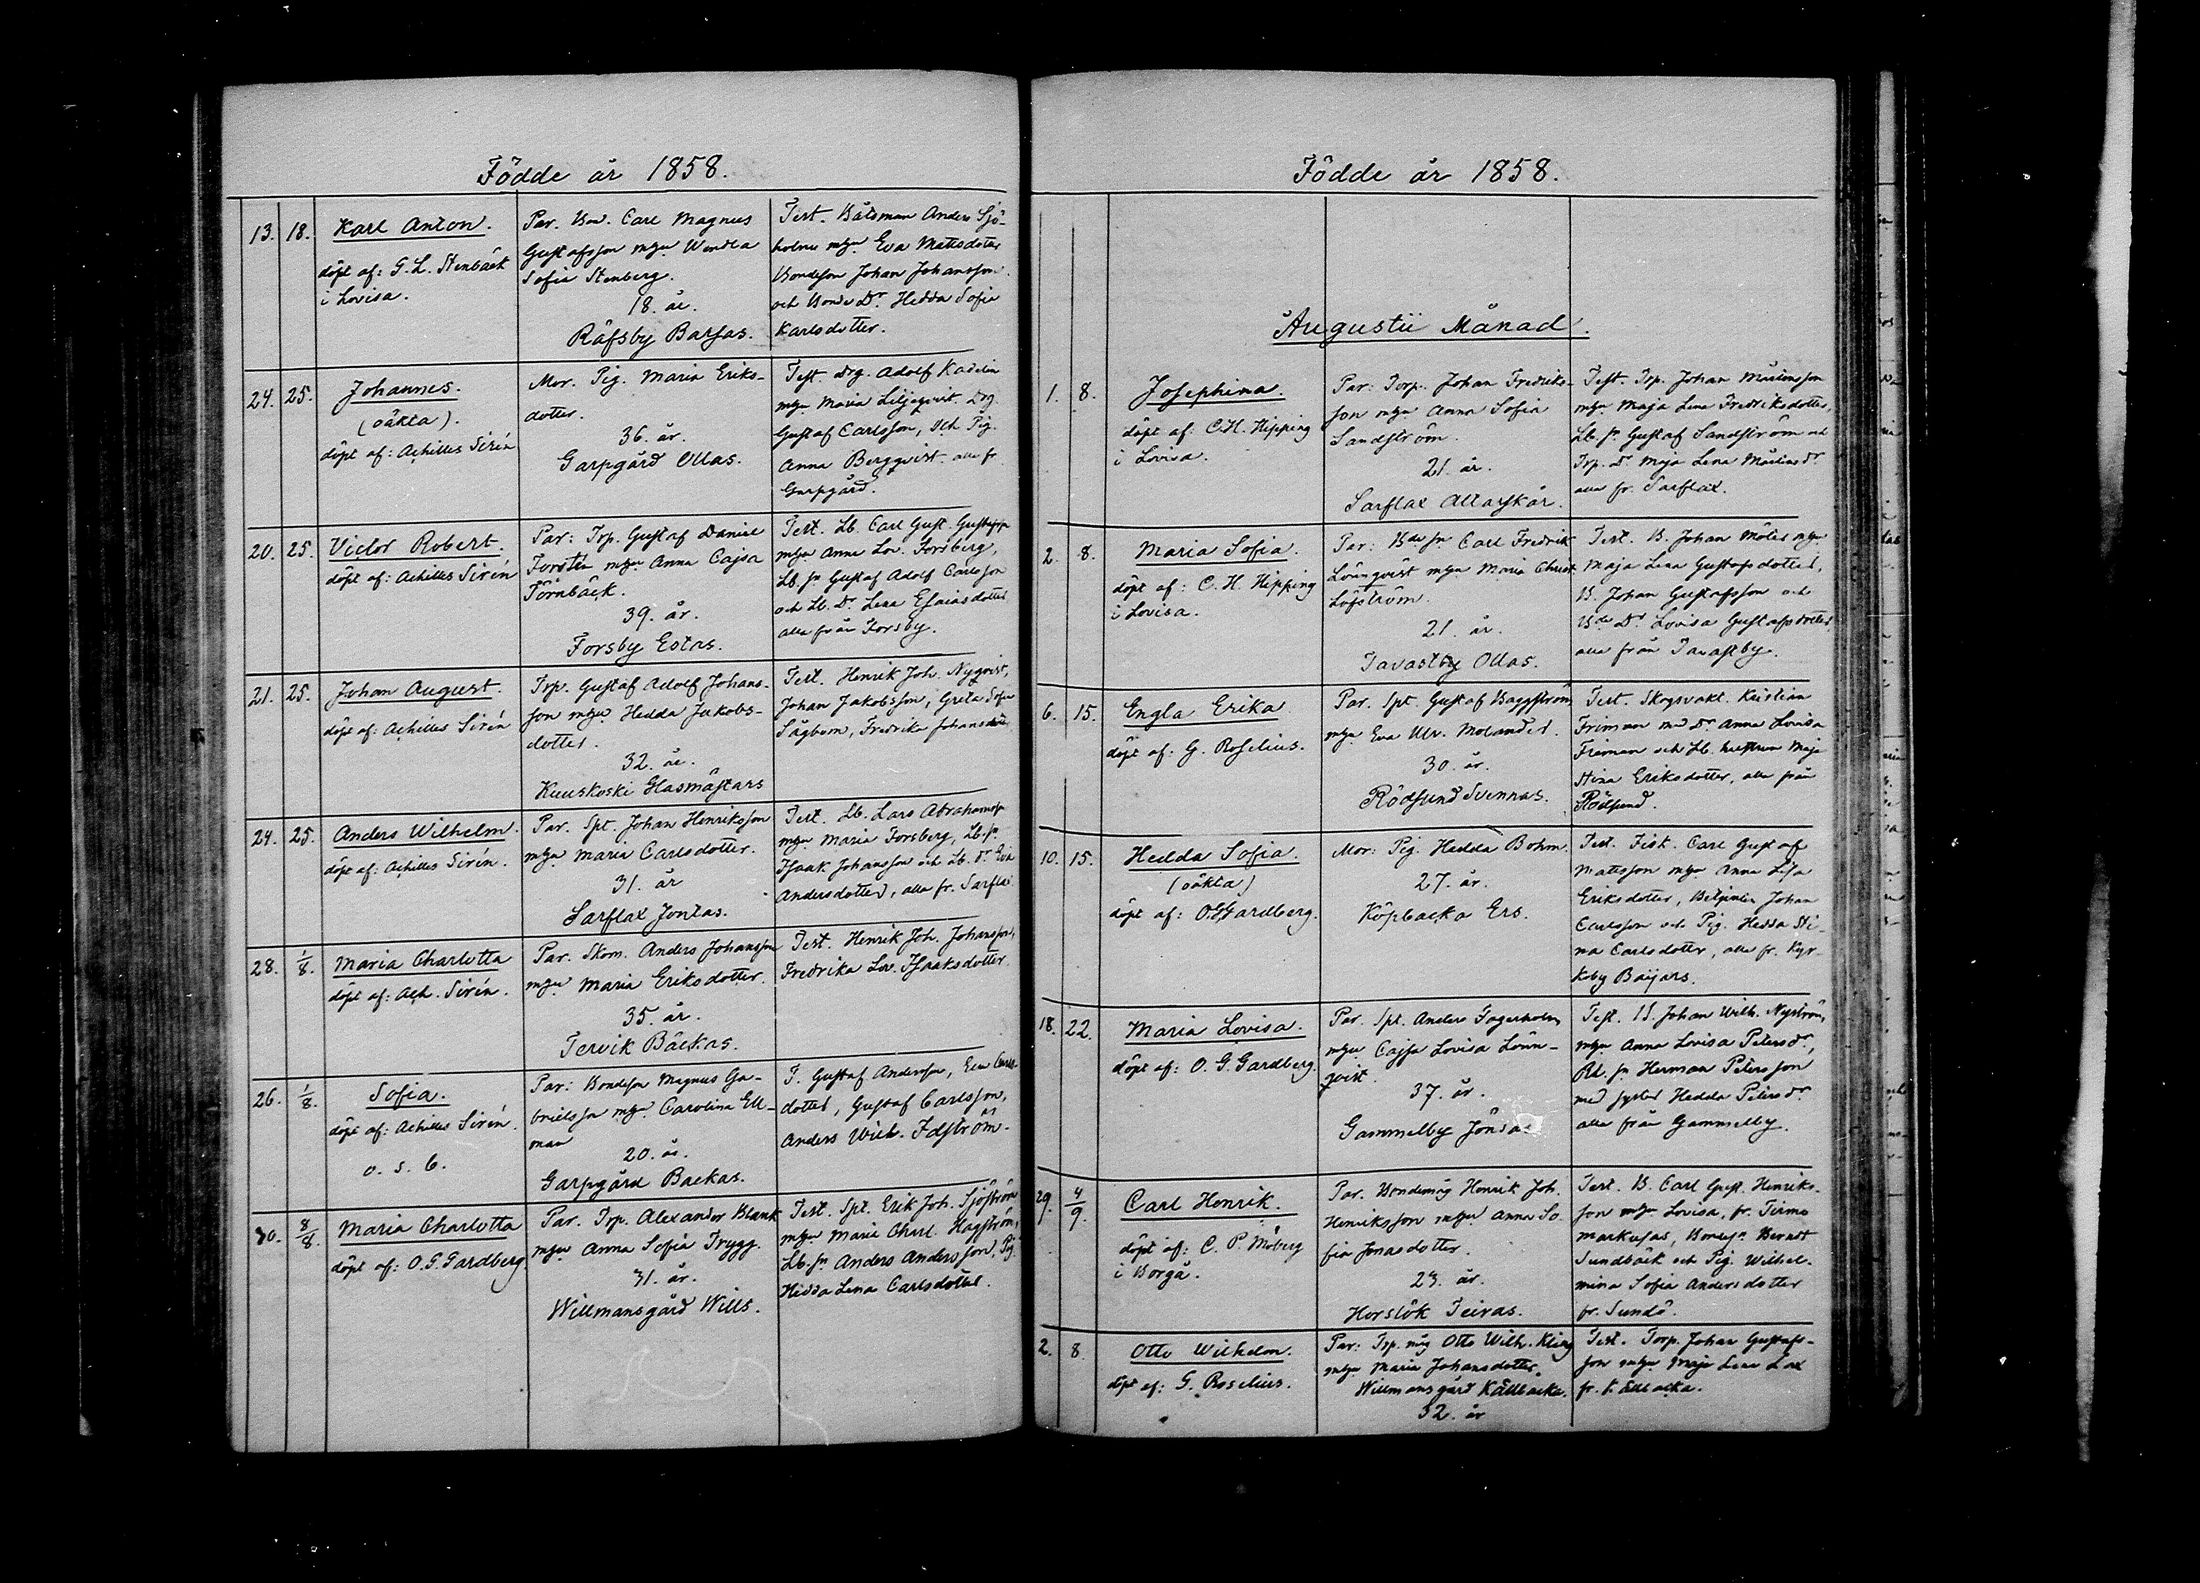 Födde år 1858.
13. 18. Karl Anton.
döpt af: G. L. Stenbäck
i Lovisa.
Par. Carl Magnus
Gustafsson mgn Wendla
Sofia Stenberg.
18. år.
Räfsby Barsas.
Test. Båtsman Anders Sjö-
holm mgn Eva Mattsdotter
Bondeson Johan Johansson
och Bonde Dr. Hedda Sofia
Karlsdotter.
24. 25. Johannes.
(oäkta).
döpt af: Achilles Sirén
Mor. Pig. Maria Eriks-
dotter.
36. år.
Garpgård Ollas.
Test. Drg. Adolf
mgn Maria Liljeqvist. Drg.
Gustaf Carlsson, och Pig.
Anna Bergqvist. alla fr.
Garpgård.
20. 25. Victor Robert.
döpt af: Achilles Sirén
Par: Trp. Gustaf Daniel
Forstén mgn Anna Cajsa
Törnbäck.
39. år.
Forsby Estas.
Test. Lb. Carl Gust.
mgn Anna Lov. Forsberg,
Lb. sn Gustaf Adolf Carlsson
och Lb. Dr. Lena Esaiasdotter
alla från Forsby.
21. 25. Johan August.
döpt af: Achilles Sirén
Trp. Gustaf Adolf Johans-
son mgn Hedda Jakobs-
dotter.
32. år.
Kuuskoski Glasmästars
Test. Henrik Joh. Nyqvist,
Johan Jakobsson, Greta Sofia
Sågbom, Fredrika
24. 25. Anders Wilhelm.
döpt af: Achilles Sirén.
Par. Spt. Johan Henriksson
mgn Maria Carlsdotter.
31. år
Sarflax Jontas.
Test. Lb. Lars
mgn Maria Forsberg, Lb. sn
Isaak Johansson och Lb. Dr Eva
Andersdotter, alla fr. Sarflax
28. 1/8. Maria Charlotta
döpt af: Ach. Sirén.
Par. Skom. Anders Johansson
mgn Maria Eriksdotter.
35. år.
Tervik Bäckas.
Test. Henrik Joh. Johansson,
Fredrika Lov. Isaaksdotter.
26. 1/8. Sofia.
döpt af: Achilles Sirén.
o. s. b.
Par: Bondeson Magnus Ga-
brielsson mgn. Carolina Ell-
man
20. år.
Garpgård Backas.
T. Gustaf Andersson, Eva Carls-
dotter, Gustaf Carlsson,
Anders Wilh. Idström.
30. 8/8. Maria Charlotta
döpt af: O. G. Gardberg
Par. Trp. Alexander Blank
mgn Anna Sofia Trygg.
31. år.
Willmansgård Wills.
Test. Spt. Erik Joh. Sjöström
mgn Maria Charl. Hagström,
Lb. sn Anders Andersson, Pig.
Hedda Lena Carlsdotter.
Födde år 1858.
Augustii Månad.
1. 8. Josephina.
döpt af: C. H. Hipping
i Lovisa.
Par: Torp. Johan Fredriks-
son mgn Anna Sofia
Sandström.
21. år.
Sarflax Altarskär.
Test. Trp. Johan Mårtensson
mgn Maja Lena Fredriksdotter,
Lb. sn Gustaf Sandström och
Trp. Dr. Maja Lena Mårtensdr.
alla fr. Sarflax.
2. 8. Maria Sofia.
döpt af: C. H. Hipping
i Lovisa.
Par: Bde sn Carl Fredrik
Lönnqvist mgn Maria Christ.
Löfström.
21. år.
Tavastby Ollas.
Test. B. Johan Möller mgn
Maja Lena Gustafsdotter,
B. Johan Gustafsson och
Bde Dr Lovisa Gustafsdotter,
alla från Tavastby.
6. 15. Engla Erika
döpt af: G. Roselius.
Par. Spt. Gustaf Baggström
mgn Eva Ulr. Molander.
30. år.
Rödsund Svennas.
Test. Skogsvakt. Kristian
Friman med Dr Anna Lovisa
Friman och Lb. hustrun Maja
Stina Eriksdotter, alla från
Rödsund.
10. 15. Hedda Sofia.
(oäkta)
döpt af: O. G. Gardberg.
Mor: Pig. Hedda Bohm.
27. år.
Köpbacka Ers.
Test. Fisk. Carl Gustaf
Mattsson mgn Anna Lisa
Eriksdotter, Johan
Carlsson och Pig. Hedda Sti-
na Carlsdotter, alla fr. Kyr-
koby Baijars.
18. 22. Maria Lovisa.
döpt af: O. G. Gardberg.
Par. Spt. Anders Fagerholm
mgn Cajsa Lovisa Lönn-
qvist.
37. år.
Gammelby Jonsas
Test. B. Johan Wilh. Nyström,
mgn Anna Lovisa Petersdr,
Bd. sn Herman Petersson
med syster Hedda Petersdr
alla från Gammelby.
29. 4/9. Carl Henrik.
döpt af: C. P. Moberg
i Borgå.
Par. Bondemåg Henrik Joh.
Henriksson mgn Anna So-
fia Jonasdotter.
23. år.
Horslök Teiras.
Test. B. Carl Gust. Henriks-
son mgn Lovisa, fr. Tirmo
Markusas, Bondesn Berndt
Sundbäck och Pig. Wilhel-
mina Sofia Andersdotter
fr. Sundö.
2. 8. Otto Wilhelm.
döpt af: G. Roselius.
Par: Trp. måg Otto Wilh. Kling
mgn Maria Johansdotter,
Willmansgård Källbacka.
32. år
Test. Torp. Johan Gustafs-
son mgn Maja Lena Lax
fr. Källbacka.